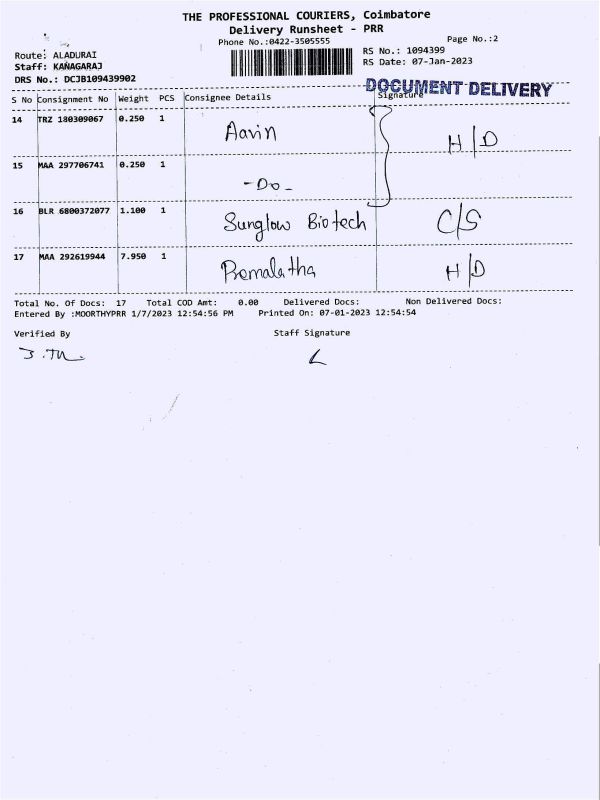 THE PROFESSIONAL COURIERS, Coimbatore
Delivery Runsheet - PRR
Phone No.:0422-3505555
Page No.:2
Route: ALADURAI
RS No.: 1094399
Staff: KANAGARAJ
RS Date: 07-Jan-2023
DRS No.: DCJB109439902
DOCUMENT DELIVERY
S No Consignment No Weight PCS Consignee Details Signature
14 TRZ 180309067 0.250 1 Aavin H/D
15 MAA 297706741 0.250 1 -Do-
16 BLR 6800372077 1.100 1 Sunglow Biotech C/S
17 MAA 292619944 7.950 1 Premalatha H/D
Total No. Of Docs: 17 Total COD Amt: 0.00 Delivered Docs: Non Delivered Docs:
Entered By :MOORTHYPRR 1/7/2023 12:54:56 PM Printed On: 07-01-2023 12:54:54
Verified By Staff Signature